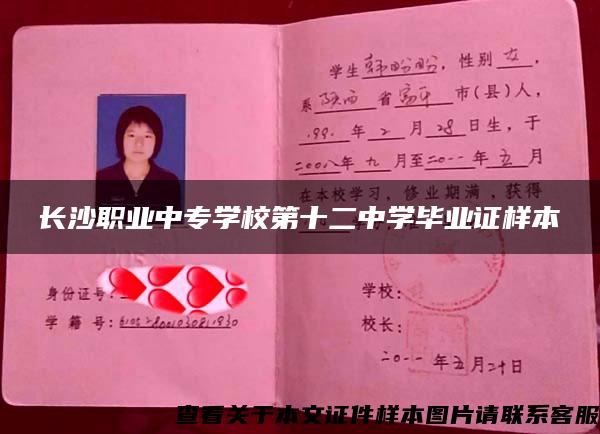 学生韩盼盼，性别女，
系陕西省富平市(县)人，
1991年2月28日生，于
二00八年九月至二0一一年五月
在本校学习，修业期满，获得
长沙职业中专学校第十二中学毕业证样本
身份证号：
学籍号：
学校：
校长：
二0一一年五月二十日
查看关于本文证件样本图片请联系客服